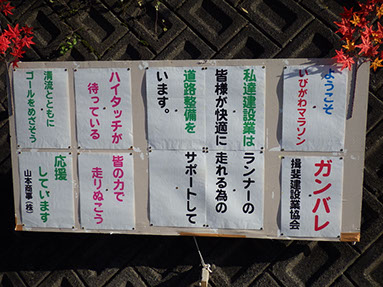 ようこそ
いびがわマラソン
ガンバレ
揖斐建設業協会
私達建設業は
ランナーの
皆様が快適に
走れる為の
道路整備を
サポートして
います。
ハイタッチが
待っている
皆の力で
走りぬこう
清流とともに
ゴールをめざそう
応援
しています
山本商事(株)